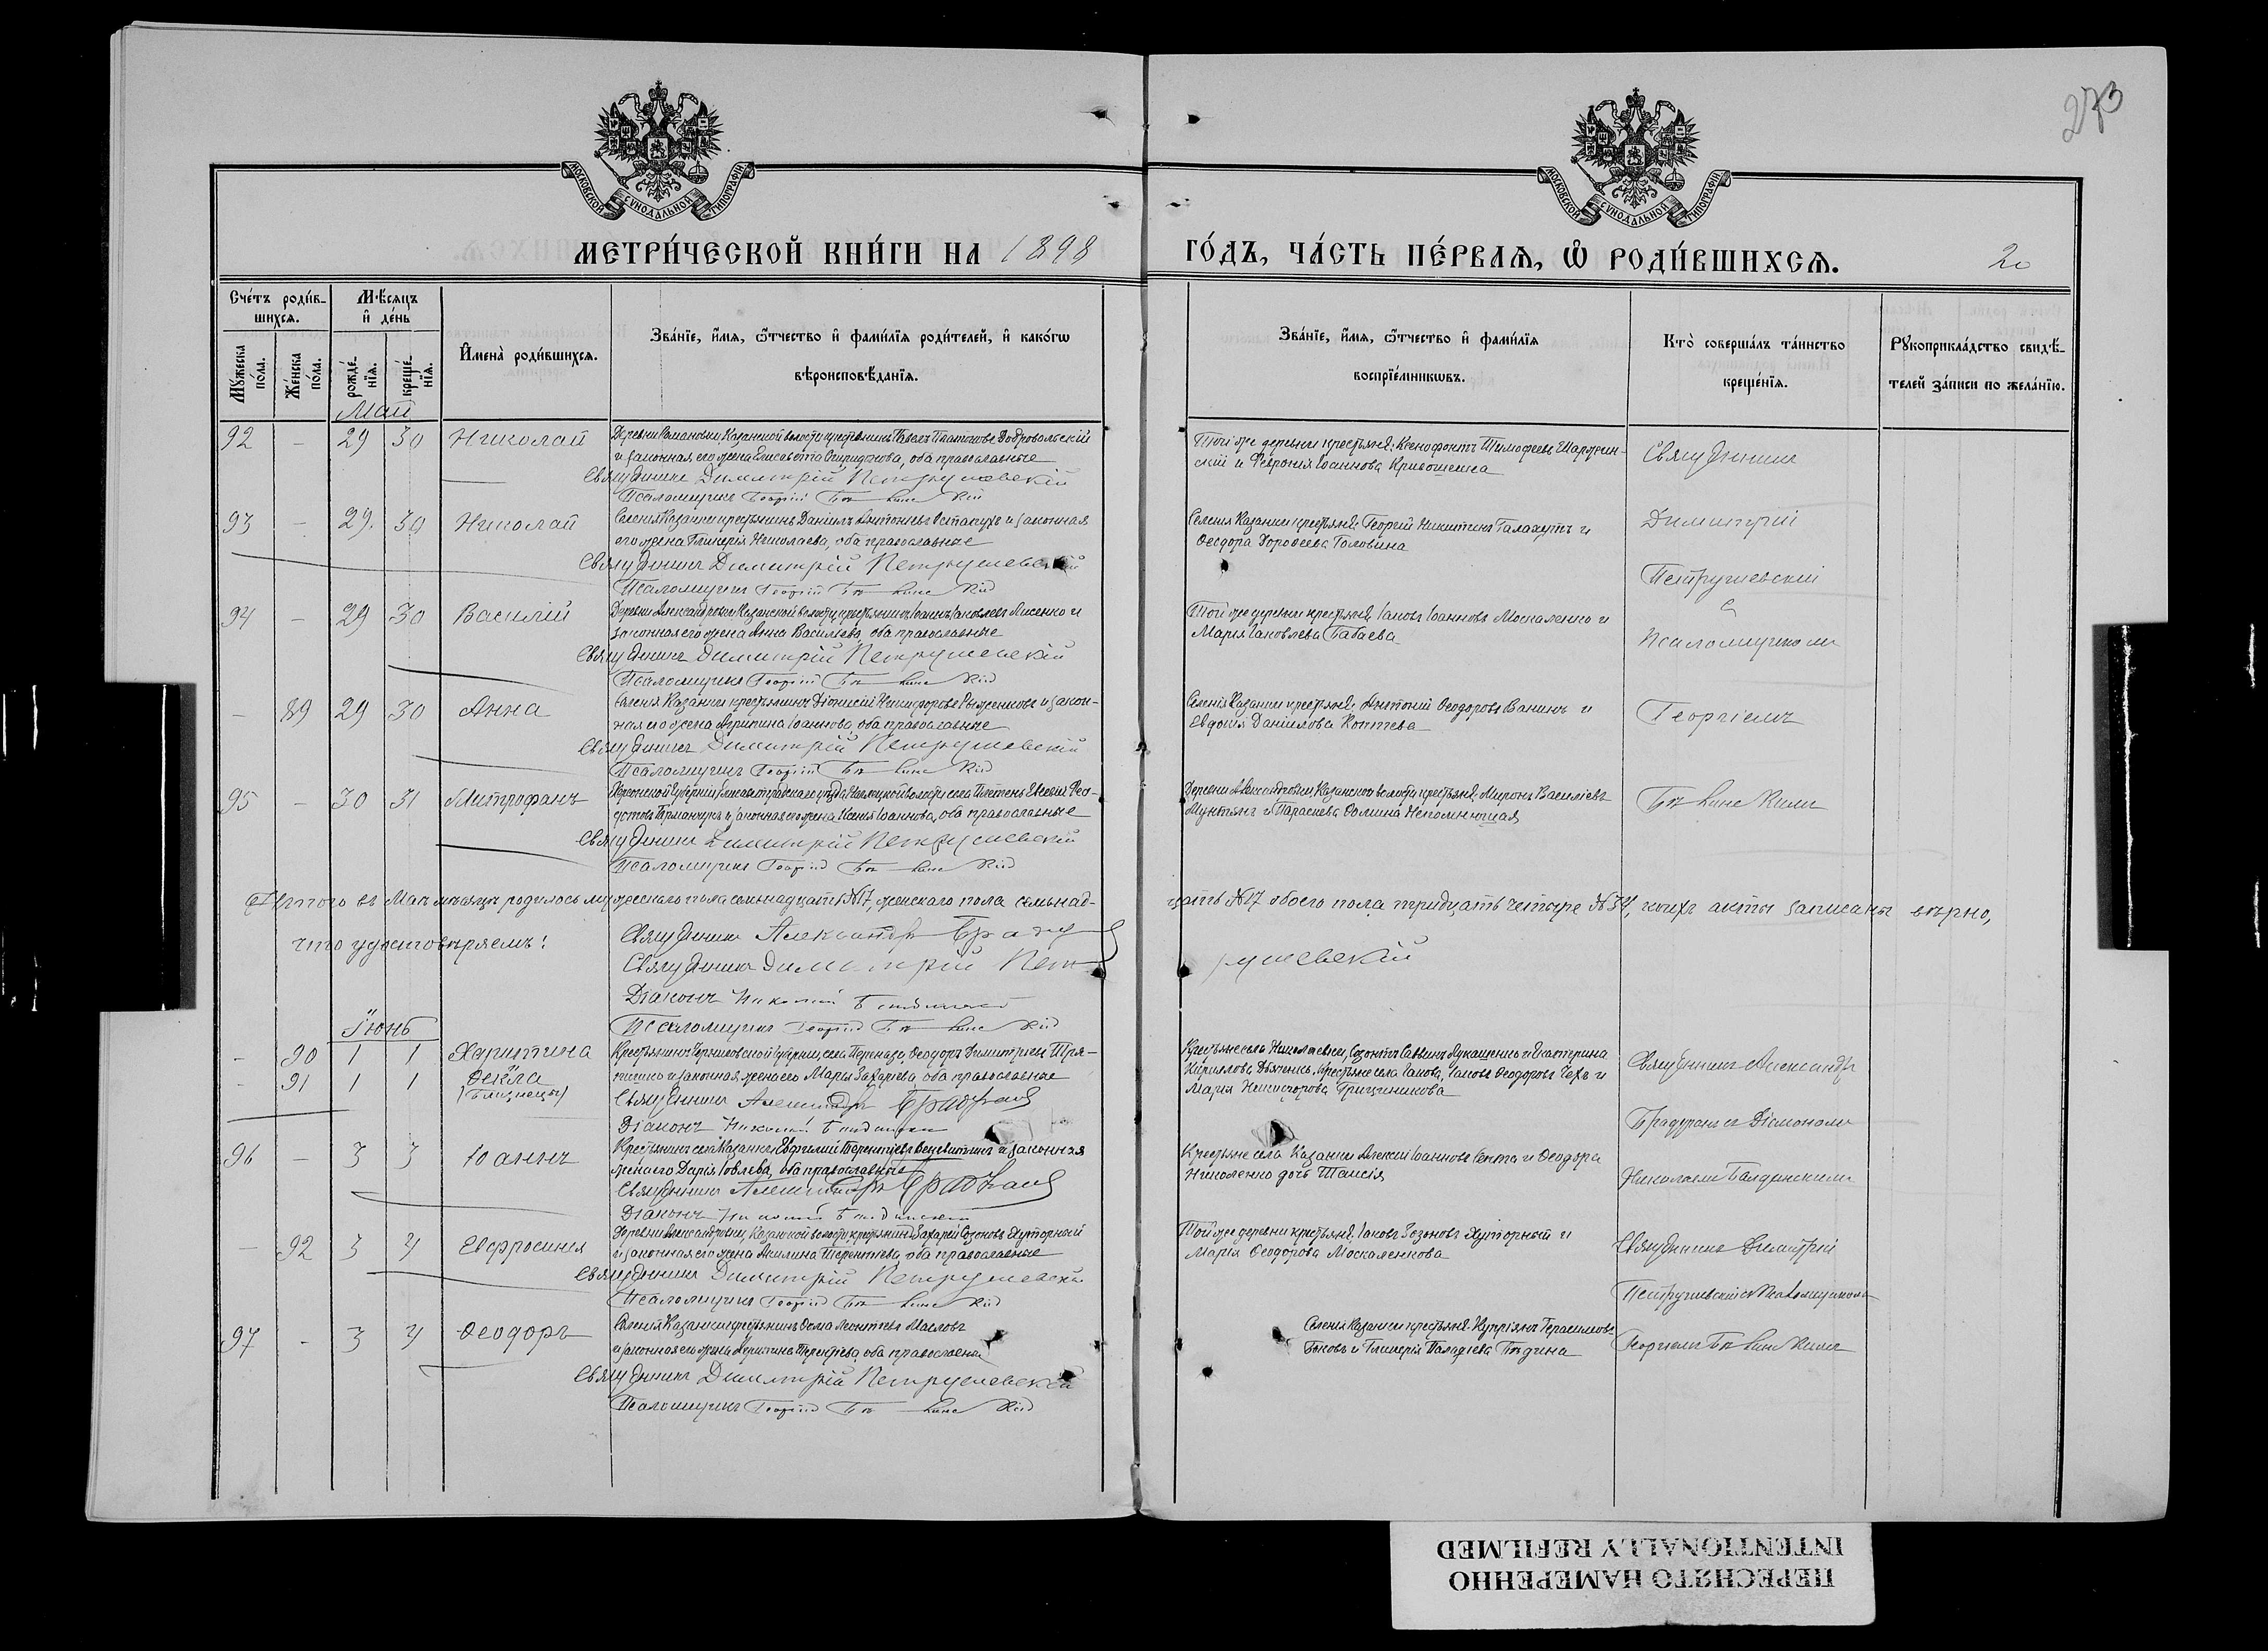 273
МОСКОВСКОЙ СѴНОДАЛЬНОЙ ТИПОГРАФІИ
МОСКОВСКОЙ СѴНОДАЛЬНОЙ ТИПОГРАФІИ
МЕТРИ́ЧЕСКОЙ КНИ́ГИ НА 1898
ГО́ДЪ, ЧА́СТЬ ПЕ́РВАѦ, Ѽ РОДИ́ВШИХСѦ. 20
Сче́тъ роди́в-
шихсѧ.
Мѣ́сяцъ
и҆ де́нь
Мꙋ́жеска по́ла.
Же́нска по́ла.
рожде́-нїѧ.
креще́-нїѧ.
И҆мена̀ роди́вшихсѧ.
Зва́нїе, и҆́мѧ, ѻ҆́тчество и҆ фами́лїѧ роди́телей, и҆ како́гѡ
вѣроисповѣ́данїѧ.
Зва́нїе, и҆́мѧ, ѻ҆́тчество и҆ фами́лїѧ
воспрїе́мникѡвъ.
Кто̀ соверша́лъ та́инство
креще́нїѧ.
Рꙋкоприкла́дство свидѣ́-
телей за́писи по жела́нїю.
Май
92 – 29 30 Николай
Деревни Романовки Казанской волости крестьянинъ Павелъ Платоновъ Добровольскій
и законная его жена Елисавета Спиридонова, оба православные
Священникъ Димитрій Петрушевскій
Псаломщикъ Георгій
Той же деревни крестьяне: Ксенофонтъ Тимофеевъ Шаржин-
скій и Февронія Іоаннова Кривошеина
Священникъ
93 – 29. 30 Николай
Селенія Казанки крестьянинъ Даніилъ Антоновъ Остапухъ и законная
его жена Гликерія Николаева, оба православные
Священникъ Димитрій Петрушевскій
Псаломщикъ Георгій
Селенія Казанки крестьяне: Георгій Никитинъ Галахутъ и
Ѳеодора Дороѳеева Головина
Димитрій
Петрушевскій
94 – 29 30 Василій
Деревни Александровки Казанской волости крестьянинъ Іоаннъ Іаковлевъ Лисенко и
законная его жена Анна Васильева, оба православные
Священникъ Димитрій Петрушевскій
Псаломщикъ Георгій
Той же деревни крестьяне: Іаковъ Іоанновъ Москаленко и
Марія Іаковлева Бабаева
съ
псаломщикомъ
– 89 29 30 Анна
Селенія Казанки крестьянинъ Діонисій Никифоровъ Рыженковъ и закон-
ная его жена Агрипина Іоаннова, оба православные
Священникъ Димитрій Петрушевскій
Псаломщикъ Георгій
Селенія Казанки крестьяне: Антоній Ѳеодоровъ Ванинъ и
Евдокія Даніилова Коптева
Георгіемъ
95 – 30 31 Митрофанъ
Херсонской губерніи Елисаветградскаго уѣзда
и законная его жена Ксенія Іоаннова, оба православные
Священникъ Димитрій Петрушевскій
Псаломщикъ Георгій
Деревни Александровки, Казанской волости крестьяне: Миронъ Васильевъ
Мунтянъ и Параскева Ѳомина Непомнющая
Итого въ Маѣ мѣсяцѣ родилось мужескаго пола семьнадцать №17, женскаго пола семьнад-
цать №17 обоего пола тридцать четыре №34, коихъ акты записаны вѣрно,
что удостовѣряемъ:
Священникъ Александръ
Священникъ Димитрій Петрушевскій
Діаконъ Николай
Псаломщикъ Георгій
Іюнь
– 90 1 1 Харитина
– 91 1 1 Ѳекла
(Близнецы)
Крестьянинъ Черниговской губерніи, села Ѳеодоръ Димитріевъ
и законная жена его Марія Захаріева, оба православные
Священникъ Александръ
Діаконъ Николай
Крестьяне села Николаевки, Созонтъ Саввинъ Лукашенко и Екатерина
Кириллова Дяченко, крестьяне села Іаковъ Ѳеодоровъ Чехъ и
Марія Никифорова Грищенкова
Священникъ Александръ
съ Діакономъ
96 – 3 3 Іоаннъ
Крестьянинъ села Казанки Евфимій Терентьевъ Веневитинъ и законная
жена его Дарія Іовлева, оба православные
Священникъ Александръ
Діаконъ Николай
Крестьяне села Казанки Алексій Іоанновъ и Ѳеодора
Николенко дочь Таисія
Николаемъ
– 92 3 4 Евфросинія
Деревни Александровки, Казанской волости, крестьянинъ Захарій Созоновъ Хуторный
и законная его жена Акилина Терентьева, оба православные
Священникъ Димитрій Петрушевскій
Псаломщикъ Георгій
Той же деревни крестьяне: Іаковъ Созоновъ Хуторный и
Марія Ѳеодорова Москаленкова
Священникъ Димитрій
Петрушевскій съ Псаломщикомъ
97 – 3 4 Ѳеодоръ
Селенія Казанки крестьянинъ Ѳома Леонтьевъ Масловъ
и законная его жена оба православные
Священникъ Димитрій Петрушевскій
Псаломщикъ Георгій
Селенія Казанки крестьяне: Купріянъ Герасимовъ
Боковъ и Гликерія Паладіева Бѣдина
Георгіемъ
ПЕРЕСНЯТО НАМЕРЕННО
INTENTIONALLY REFILMED